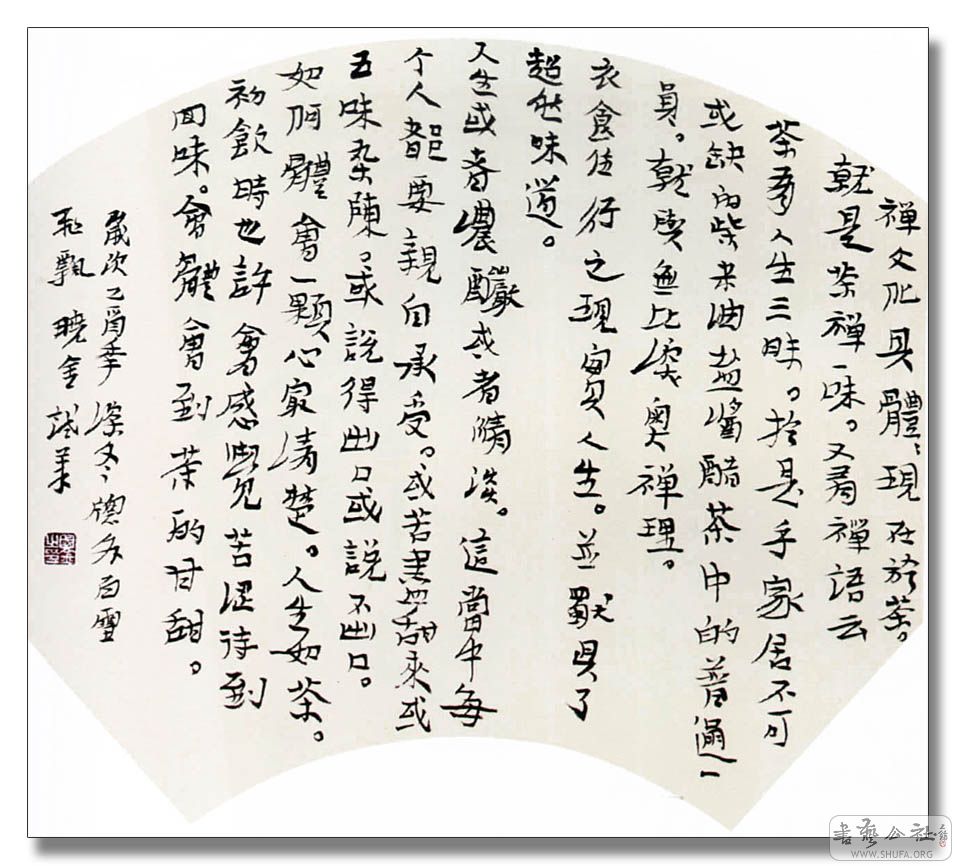 禪文化具體〻現在於茶。
就是茶禪一味。又有禪語云
茶有人生三昧。於是乎家居不可
或缺的柴米油盐醬醋茶中的普通一
員。就與無比深奧禪理。
衣食住行之現實人生。並具了
超然味道。
人生或者濃釅或者清淡。這當中每
个人都要親自承受。或苦盡甜來或
五味杂陳。或說得出口或說不出口。
如何體會一顆心最清楚。人生如茶。
初飲時也許會感覺苦涩待到
回味。會體會到茶的甘甜。
歲次乙酉年深冬窗外白雪
飛飄曉金試筆
書藝公社
WWW.SHUFA.ORG